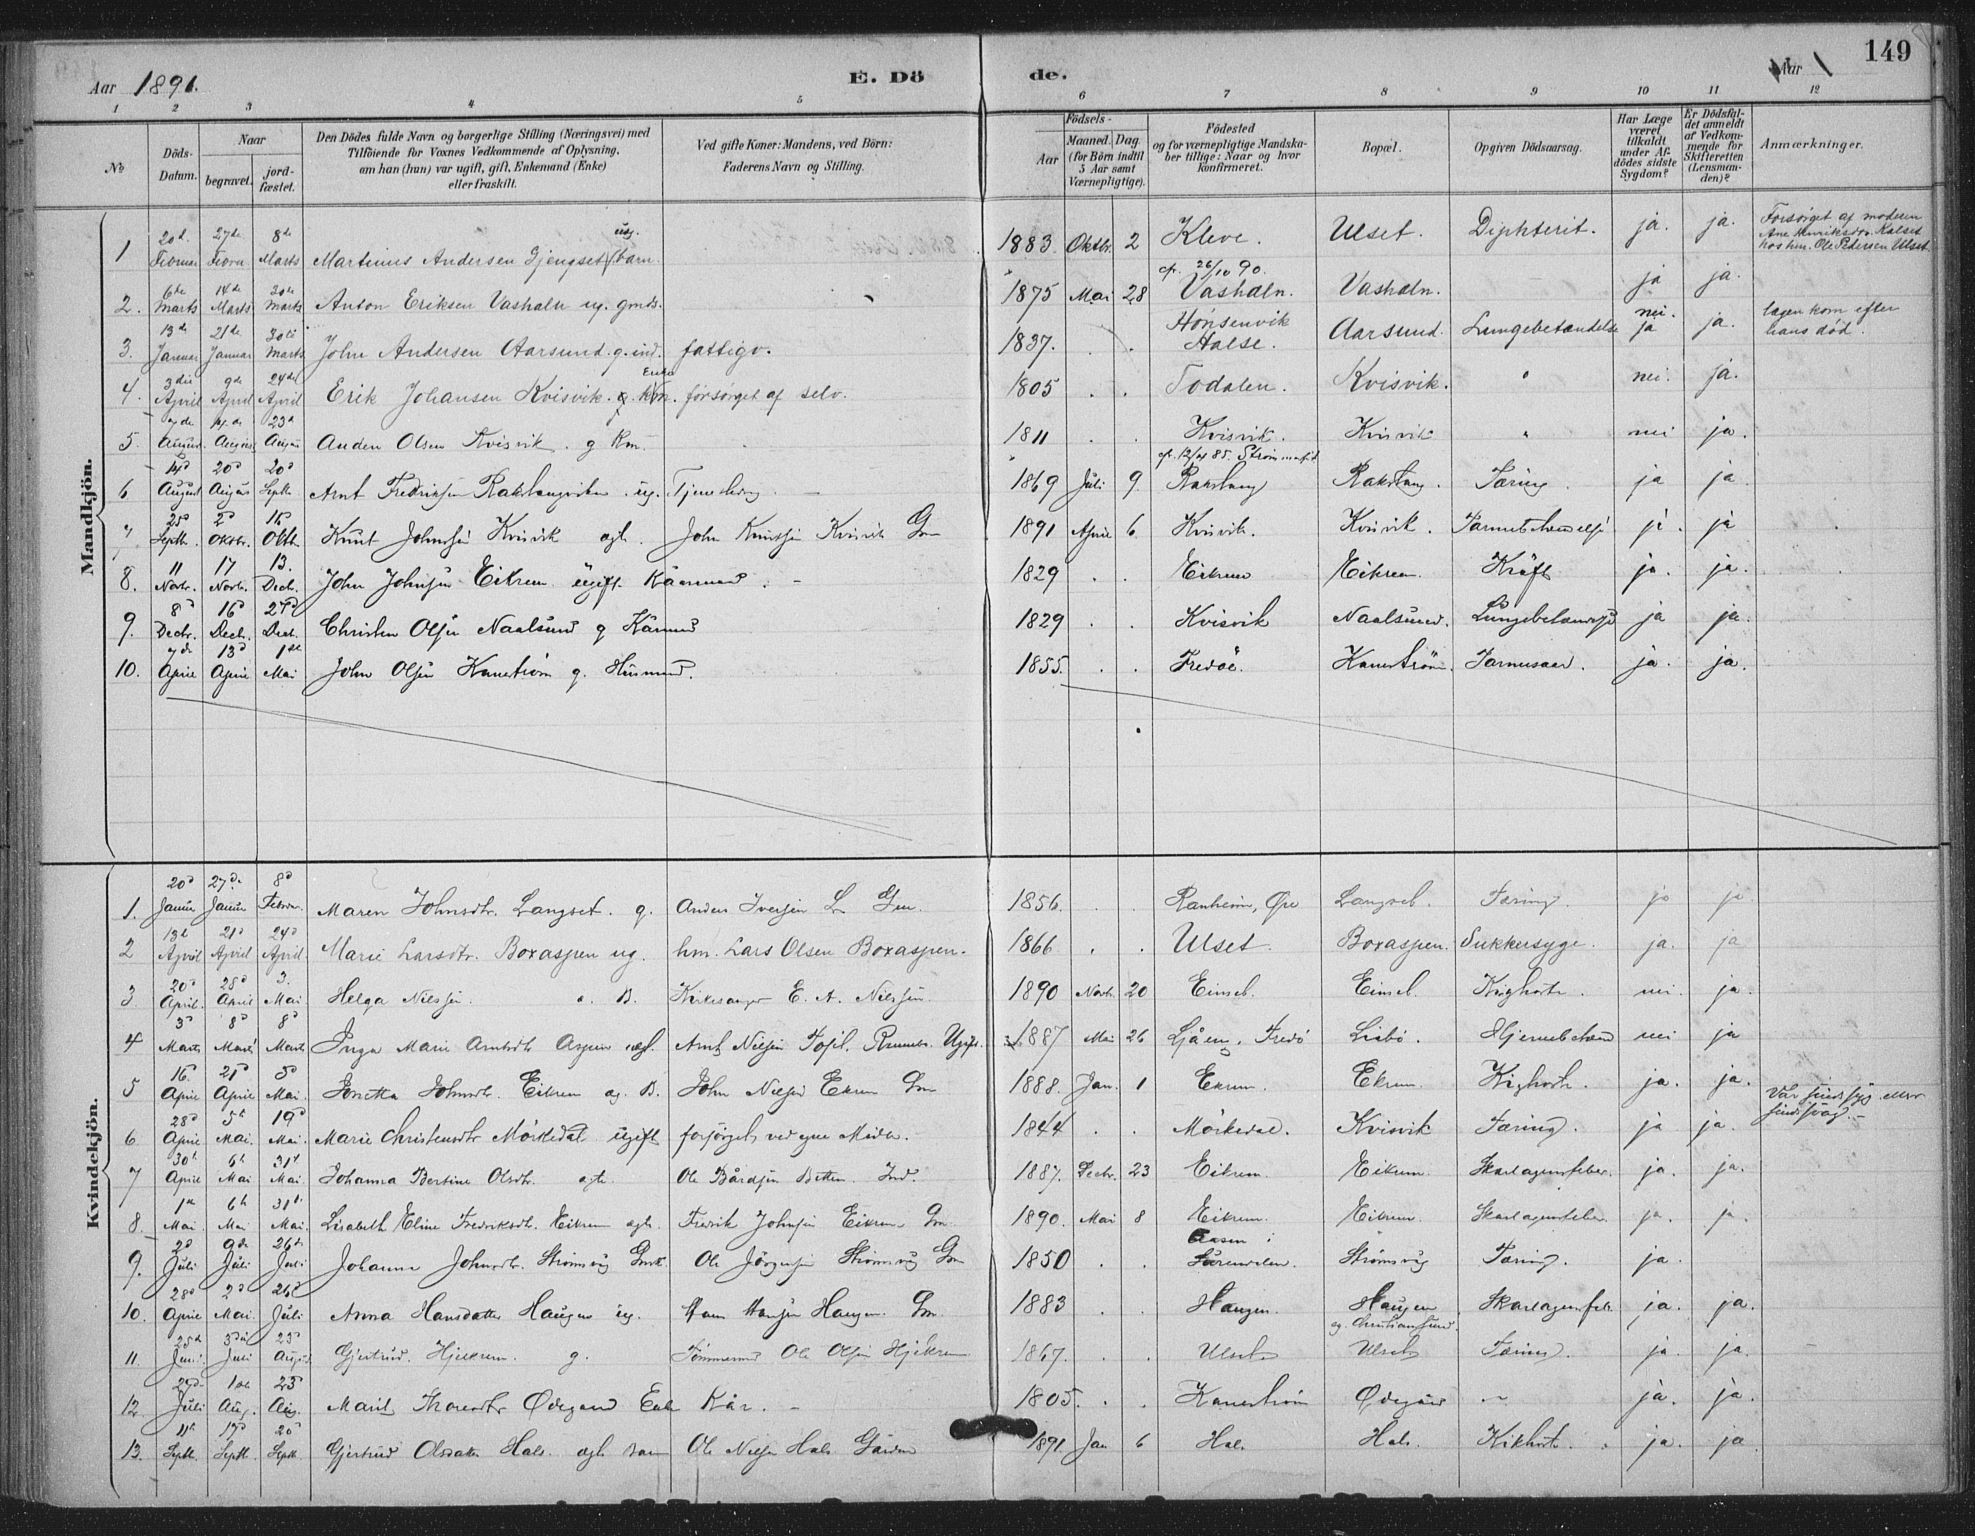 Aar 1891.
E. Döde.
Aar
149
1 2 3 4 5 6 7 8 9 10 11 12
No
Döds-Datum.
Naar
begravet.
jord-fæstet.
Den Dödes fulde Navn og borgerlige Stilling (Næringsvei) med
Tilföiende for Voxnes Vedkommende af Oplysning,
om han (hun) var ugift, gift, Enkemand (Enke)
eller fraskilt.
Ved gifte Koner: Mandens, ved Börn:
Faderens Navn og Stilling.
Födsels-
Aar
Maaned. Dag.
(for Börn indtil
5 Aar samt
Værnepligtige).
Födested
og for værnepligtige Mandska-
ber tillige: Naar og hvor
konfirmeret.
Bopæl.
Opgiven Dödsaarsag.
Har Læge
været
tilkaldt
under Af-
dödes sidste
Sygdom?
Er Dödsfal-
det anmeldt
af Vedkom-
mende for
Skifteretten
(Lensman-
den)?
Anmærkninger.
Mandkjön.
1 20d Februar 27de Febru 8de Marts Martinus Andersen Gjengset uæg. barn. 1883 Oktbr. 2 Kleve. Ulset. Diphterit. ja. ja. Forsörget af moderen
Ane Henriksdr. Kalset
hos hm. Ole Pedersen Ulset
2. 6te Marts 14de Marts 30te Marts Anton Eriksen Vashaln ug. gmds. 1875 Mai 28 cf. 26/10 90. Vashaln. Vashaln. ja ja.
3. 13de Januar 21de Januar 30te Marts John Andersen Aarsund. g. ind. fattigv. 1837. Hönsenvik Halse. Aarsund. Lungebetændelse nei. ja ja. lægen kom efter
hans död.
4. 3die April 9de April 24de April Erik Johansen Kvisvik. Enke km. forsörget af selv. 1805 Todalen. Kvisvik. " nei. ja.
5. 7de August 14de August 23d August Anders Olsen Kvisvik. g Km. 1811 Kvisvik. Kvisvik " nei ja.
6 14d August 20d August 20d Septb Arnt Fredriksen Rakvaagvika. ug. Tjenestedreng 1869 Juli 9. Tæring. ja ja.
7 25d Septbr. 2d Oktbr. Oktb. Knut Johnsen Kvisvik ægte. John Knutsen Kvisvik Gm 1891 April 6 Kvisvik. Kvisvik. ja. ja
8. 11 Novbr. 17 Novbr. 13. Decbr. John Johnsen Eikrem ugift. Kaarmand. 1829 Eikrem Eikrem. Kræft ja. ja.
9. 8d Decbr. 16d Decbr. Decbr. Christen Olsen Naalsund g Kårmand 1829 Kvisvik Naalsund. Lungebetændelse ja ja.
10. 7de April 13d April 1ste Mai John Olsen Kanestrøm g. Husmand. 1855. Fredöe. Kanestrøm. ja. ja.
Kvindekjön.
1. 20d Januar 27de Januar 8d Februar. Maren Johnsdtr. Langset. g. Anders Iversen L Gm. 1856. Ranheim, Øre Langset. Tæring. ja ja.
2 13de April 21d April 24d April Marie Larsdtr. Boxaspen ug. hm. Lars Olsen Boxaspen. 1866 Ulset. Boxaspen. Sukkersyge. ja. ja
3 20d April. 28d April 3. Mai Helga Nilssen. æ. B. Kirkesanger E. A. Nilssen 1890 Novb. 20 Einset. Einset. Kighoste. nei. ja.
4 3d Marts 8d Marts 8d Marts Inga Marie Arntsdtr Aspen uægt. Arnt Nilsen 1887 Mai 26 Fredö nei ja
5 16. April 21d April 5d Mai. Jonetta Johnsdtr. Eikrem æg. B. John Nilsen Ekrem Gm 1888. Jan. 1 Ekrem. Ekrem. Kighoste. ja. ja.
6 28d April 5te Mai. 19d Mai. Marie Christensdtr Mörkedal ugift forsörget ved egne Midler. 1844 Mörkedal. Kvisvik Tæring. ja ja. Var sindssyg eller
sindssvag.
7 30te April 6te Mai 31te Mai. Johanna Bersine Olsdtr. ægte. Ole Bårdsen Ind. 1887. Decbr. 23 Eikrem. Eikrem. Skarlagensfeber. ja. ja.
8. 1ste Mai. 6te Mai 31te Mai. Lisabeth Eline Fredriksdtr. Eikrem ægte. Fredrik Johnsen Eikrem. Gm. 1890. Mai 8 Eikrem. Eikrem. Skarlagensfeber ja. ja.
9. 2d Juli 9de Juli 26de Juli Johanna Johnsdtr. Strömsvig Gmk. Ole Jörgensen Strömsvig Gm 1850 Aasen i Surendalen. Strömsvig Tæring. ja.
10. 28d April 2d Mai. 26de Juli Anna Hansdatter Haugen ug. Hans Hansen Haugen. Gm. 1883 Haugen. Haugen og Christiansund. Skarlagensfeb. ja. ja.
11. 25d Juni 3die Juli 23d August Gjertrud. Hjelkrem. g. Tömmermd Ole Olsen Hjelkrem 1867. Ulset Ulset Tæring. ja. ja.
12. 29de Juli 1ste Aug. 23 Aug. Marit Ødegaard Enke Kår. 1805. Kanestrøm Ødegård ja. ja.
13. 11te Septb. 17d Septb. 20d Septb. Gjertrud Olsdatter Hals. ægte barn Ole Nilsen Hals Gårdm 1891. Jan 6 Hals. Hals. Kikhoste. ja. ja